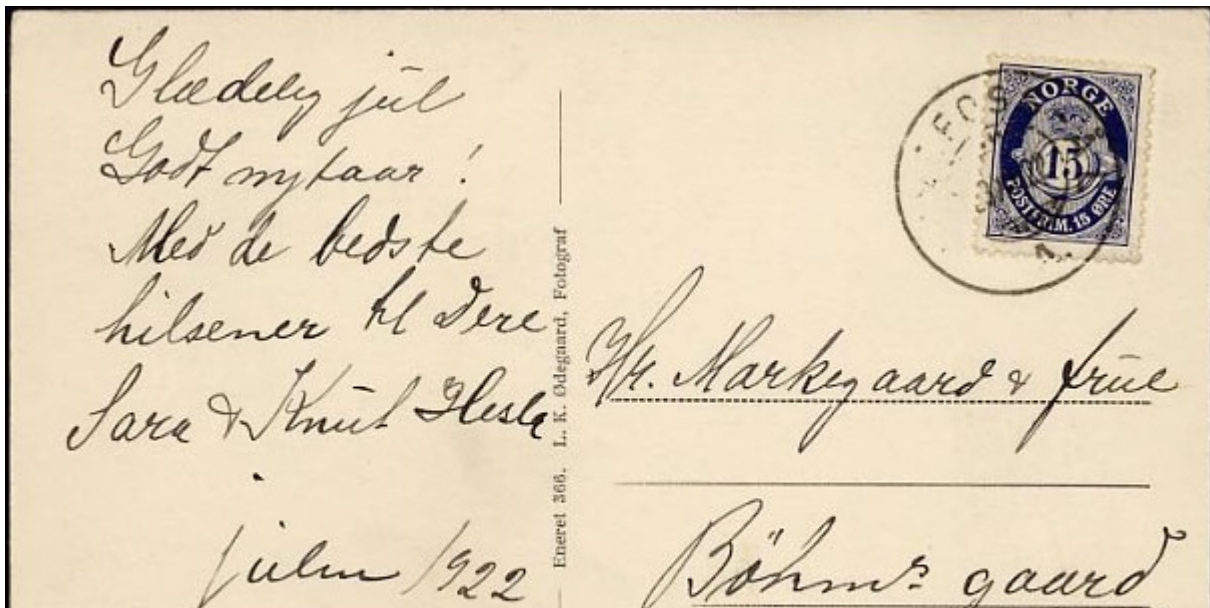 Glædelig jul
Godt nytaar!
Med de bedste
hilsener til Dere
Sara & Knut Hesla
julen 1922
Eneret 366. L. K. Ødegaard, Fotograf
NORGE
15
POSTFRIM. 15 ØRE
Hr. Markegaard & frue
Böhms gaard